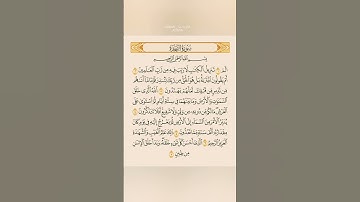 سُورَةُ السَّجْدَةِ
بِسْمِ ٱللَّهِ ٱلرَّحْمَٰنِ ٱلرَّحِيمِ
الٓمٓ ١ تَنزِيلُ ٱلْكِتَٰبِ لَا رَيْبَ فِيهِ مِن رَّبِّ ٱلْعَٰلَمِينَ ٢
أَمْ يَقُولُونَ ٱفْتَرَىٰهُ بَلْ هُوَ ٱلْحَقُّ مِن رَّبِّكَ لِتُنذِرَ قَوْمًا مَّآ أَتَىٰهُم
مِّن نَّذِيرٍ مِّن قَبْلِكَ لَعَلَّهُمْ يَهْتَدُونَ ٣ ٱللَّهُ ٱلَّذِى خَلَقَ
ٱلسَّمَٰوَٰتِ وَٱلْأَرْضَ وَمَا بَيْنَهُمَا فِى سِتَّةِ أَيَّامٍ ثُمَّ ٱسْتَوَىٰ عَلَى
ٱلْعَرْشِ مَا لَكُم مِّن دُونِهِۦ مِن وَلِىٍّ وَلَا شَفِيعٍ أَفَلَا تَتَذَكَّرُونَ ٤
يُدَبِّرُ ٱلْأَمْرَ مِنَ ٱلسَّمَآءِ إِلَى ٱلْأَرْضِ ثُمَّ يَعْرُجُ إِلَيْهِ فِى يَوْمٍ كَانَ
مِقْدَارُهُۥٓ أَلْفَ سَنَةٍ مِّمَّا تَعُدُّونَ ٥ ذَٰلِكَ عَٰلِمُ ٱلْغَيْبِ وَٱلشَّهَٰدَةِ
ٱلْعَزِيزُ ٱلرَّحِيمُ ٦ ٱلَّذِىٓ أَحْسَنَ كُلَّ شَىْءٍ خَلَقَهُۥ وَبَدَأَ خَلْقَ ٱلْإِنسَٰنِ
مِن طِينٍ ٧